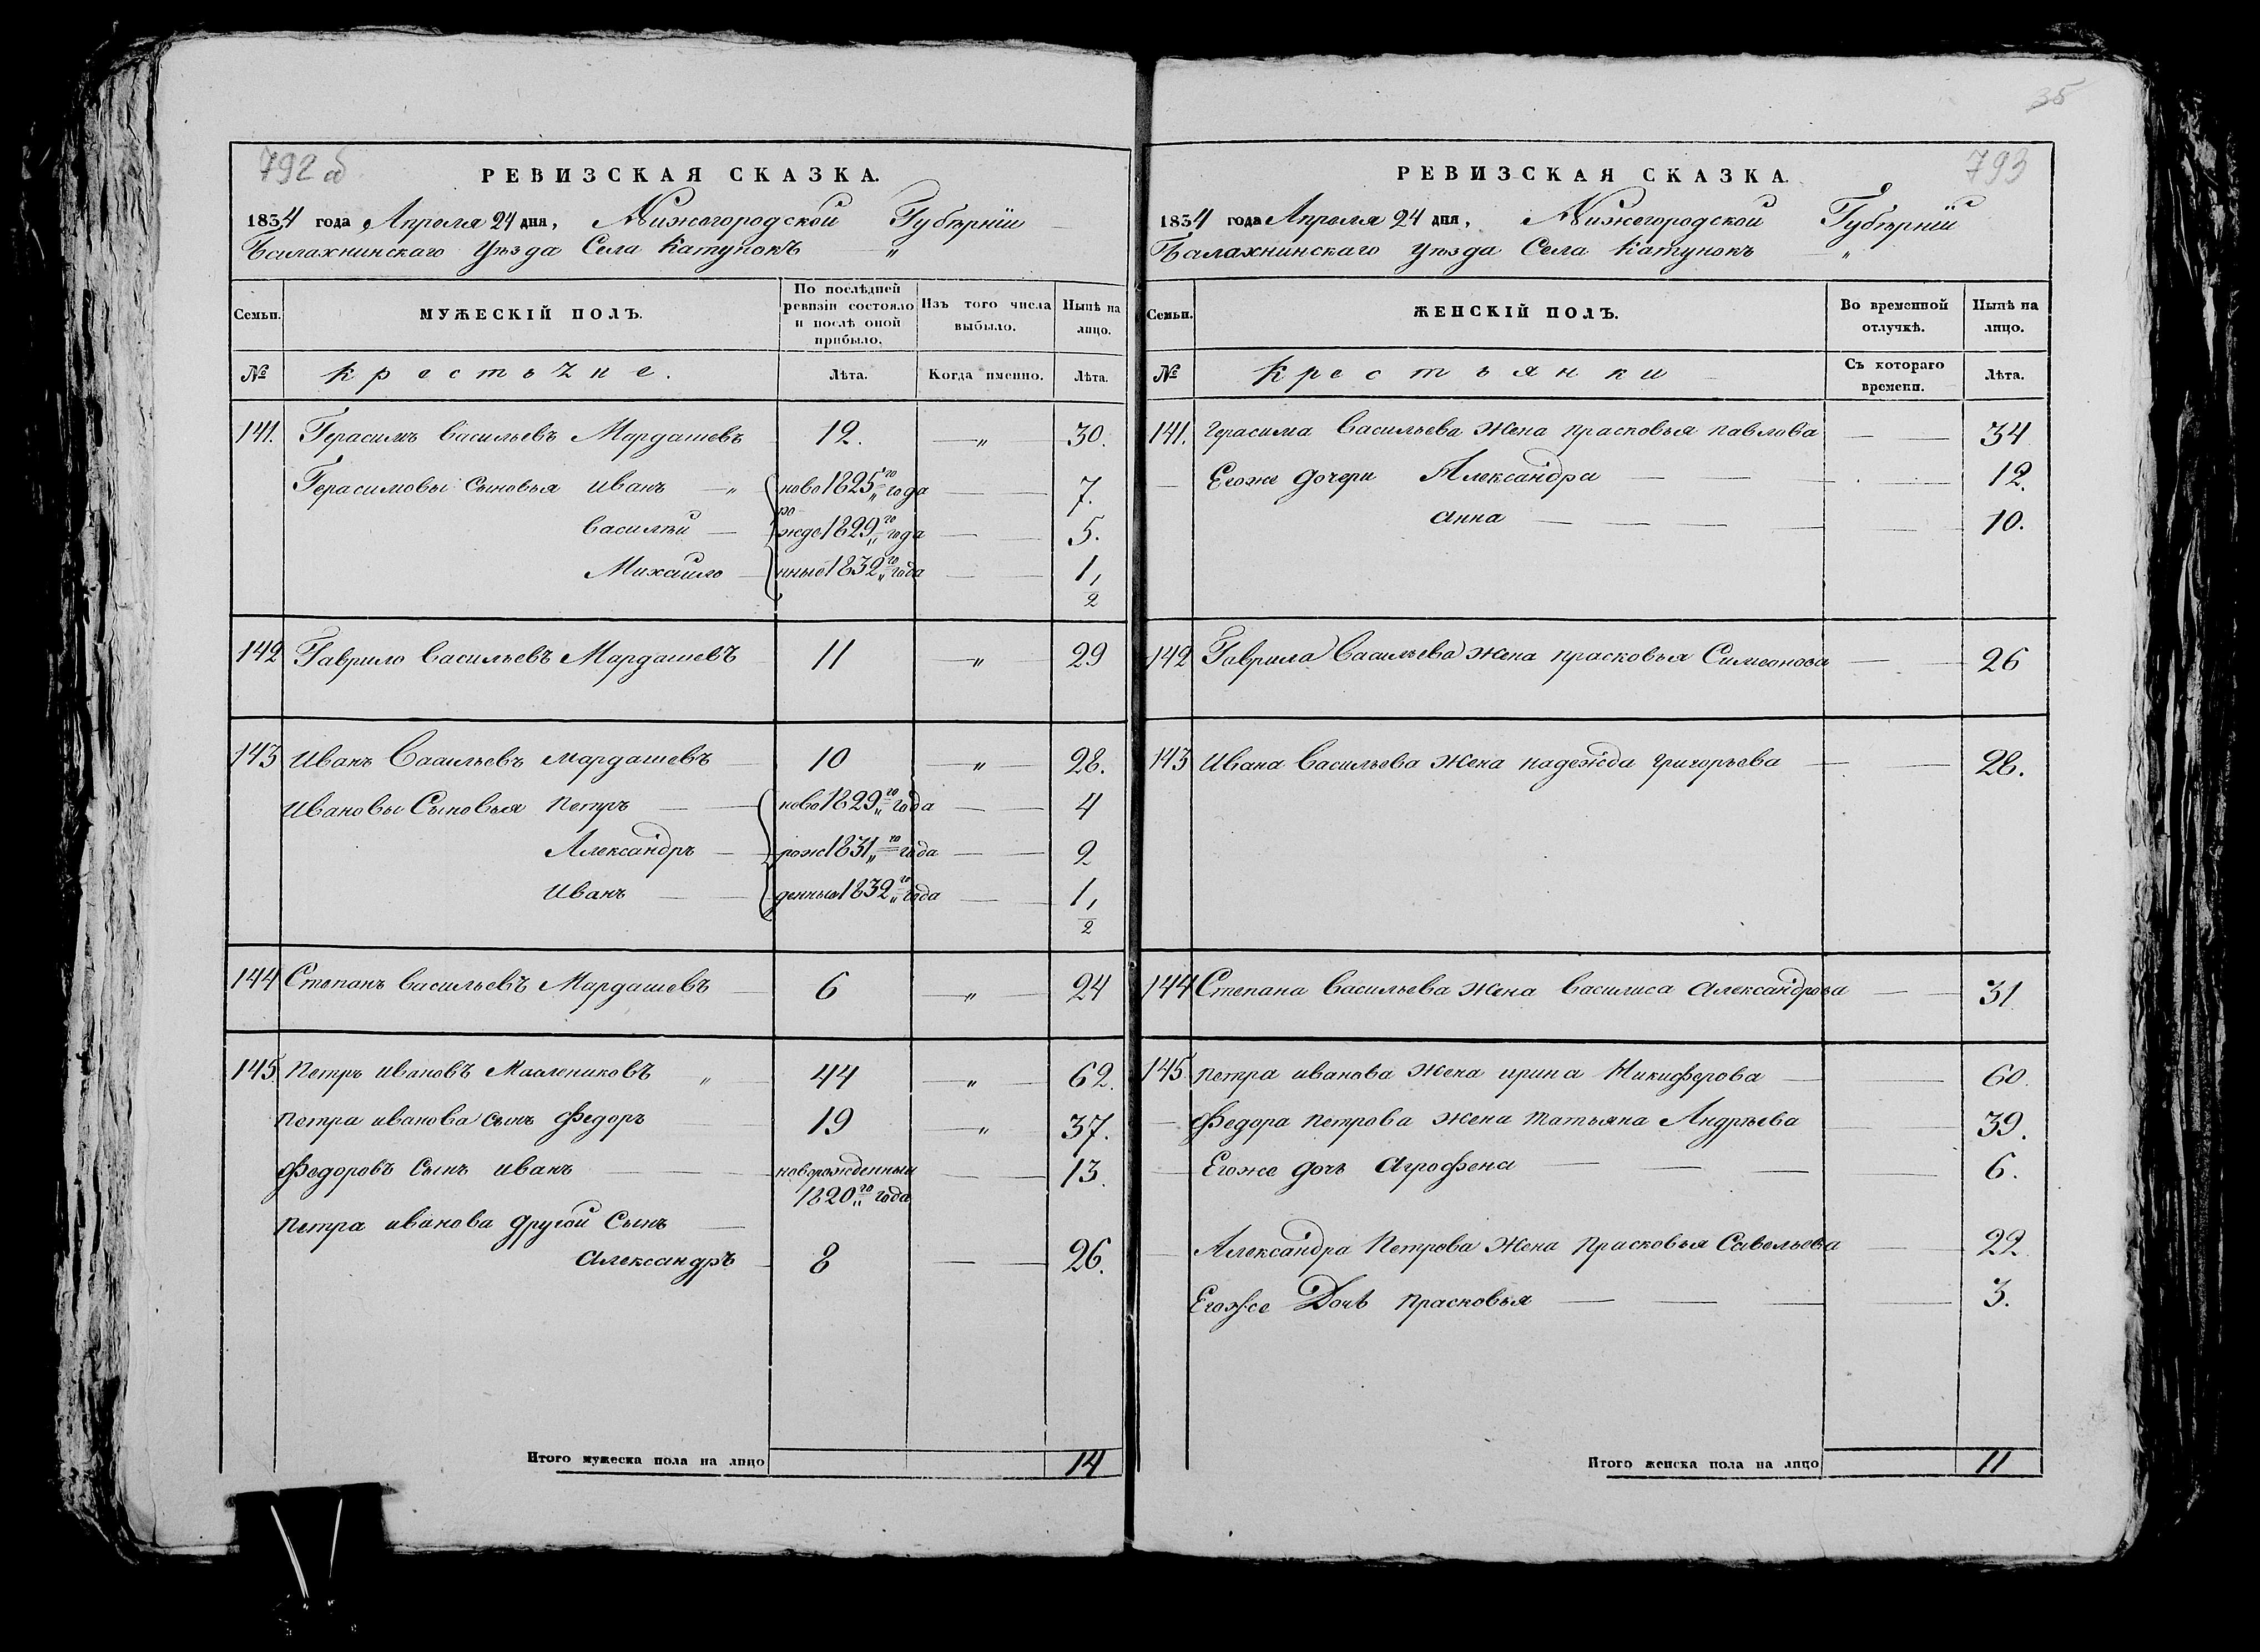 792 об
РЕВИЗСКАЯ СКАЗКА.
1834 года Апреля 24 дня, Нижегородской Губѣрніи
Балахнинскаго уѣзда Села Катунокъ „
Семьи.
МУЖЕСКІЙ ПОЛЪ.
По послѣдней ревизіи состояло и послѣ оной прибыло.
Изъ того числа выбыло.
Нынѣ на лицо.
№ Крестьяне. Лѣта. Когда именно. Лѣта.
141. Герасимъ Васильевъ Мардашевъ 12. — „ — 30.
Герасимовы Сыновья Иванъ — „ ново 1825„го года — — 7.
Василѣй — рожде 1829„го года — — 5.
Михайло — нные 1832„го года — — 1 1/2
142 Гаврило Васильевъ Мардашевъ 11 — „ — 29
143 Иванъ Васильевъ Мардашевъ 10 — „ — 28.
Ивановы Сыновья Петръ — — ново 1829„го года — — 4
Александръ — — рож 1831„го года — — 2
Иванъ — — денные 1832„го года — — 1 1/2
144 Степанъ Васильевъ Мардашевъ — 6 — „ — 24
145. Петръ Ивановъ Маслениковъ „ — 44 — „ — 62.
Петра Иванова сынъ Федоръ — 19 — „ — 37.
Федоровъ Сынъ Иванъ — — новорожденный — — 13.
1820„го года
Петра Иванова другой Сынъ —
Александръ — 8 — — 26.
Итого мужеска пола на лицо 14
35
793
РЕВИЗСКАЯ СКАЗКА.
1834 года Апреля 24 дня, Нижегородской Губѣрніи
Балахнинскаго уѣзда Села Катунокъ — „
Семьи.
ЖЕНСКІЙ ПОЛЪ.
Во временной отлучкѣ.
Нынѣ на лицо.
№ Крестьянки — Съ котораго времени. Лѣта.
141. Герасима Васильева Жена Прасковья Павлова — — 34
— Егоже дочери Александра — — — — 12.
Анна — — — — — 10.
142 Гаврила Васильева Жена Прасковья Симеонова — — 26
143 Ивана Васильева Жена Надежда Григорьева — — 28.
144 Степана Васильева Жена Василиса Александрова — — 31
145 Петра Иванова Жена Ирина Никифорова — — 60
— Федора Петрова Жена Татьяна Андрѣева — — 39.
— Егоже дочь Агрофена — — — — 6.
— Александра Петрова Жена Прасковья Савельева — — 22.
Егоже Дочь Прасковья — — — — 3.
Итого женска пола на лицо 11